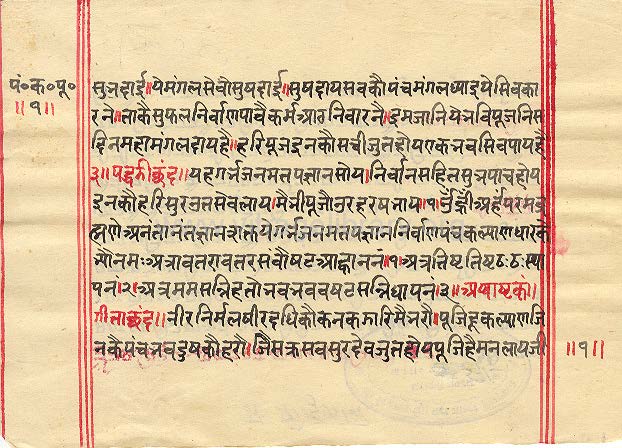 पं॰क॰पू॰
॥१॥
सुजदाई॥येमंगलसेवौसुषदाई॥सुषदायसवकौपंचमंगलध्याइयेसिवका
रनै॥ताकैसुफलनिर्वाणपावैकर्मआठनिवारनै॥इमजानियेभविपूजनिस
दिनमहामंगलदायहै॥हरिपूजइनकौसचीजुतहोयएकभवसिवपायहै
३॥पद्धडीछंद॥यहगर्भजनमतपज्ञानसोय॥निर्वानसहितसुभपांचहोय
इनकौहरिसुरषगसेवलाय॥मैभीपूजौउरहरषभाय॥१॥ॐह्रीँअर्हंपरमब्र
ह्मणेअनंतानंतज्ञानशक्तयेगर्भजनमतपज्ञाननिर्वाणपंचकल्याणधारके
भ्यौनमःअत्रावतरावतरसंवौषटआह्वाननं॥१॥अत्रतिष्टतिष्टठःठःस्था
पनं॥२॥अत्रममसन्निहतोभवभववषटसन्निधापनं॥३॥अथाष्टकं॥
गीताछंद॥नीरनिर्मलषीरदधिकौकनकझारिमेभरौ॥पूजिहूकल्याणजि
नकैपंचभवदुषकौहरौ॥जैसक्रसवसुरदेवजुतहोयपूजिहैमनलायजी
॥१॥